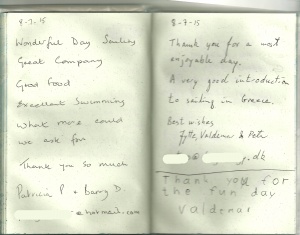 8-7-15
Wonderful Day Sailing
Great Company
Good Food
Excellent Swimming
What more could
we ask for
Thank you so much
Patricia P & Barry D.
@hotmail.com
8-7-15
Thank you for a most
enjoyable day.
A very good introduction
to sailing in Greece.
Best wishes
Valdemar & Peter
.dk
Thank you for
the fun day
Valdemar